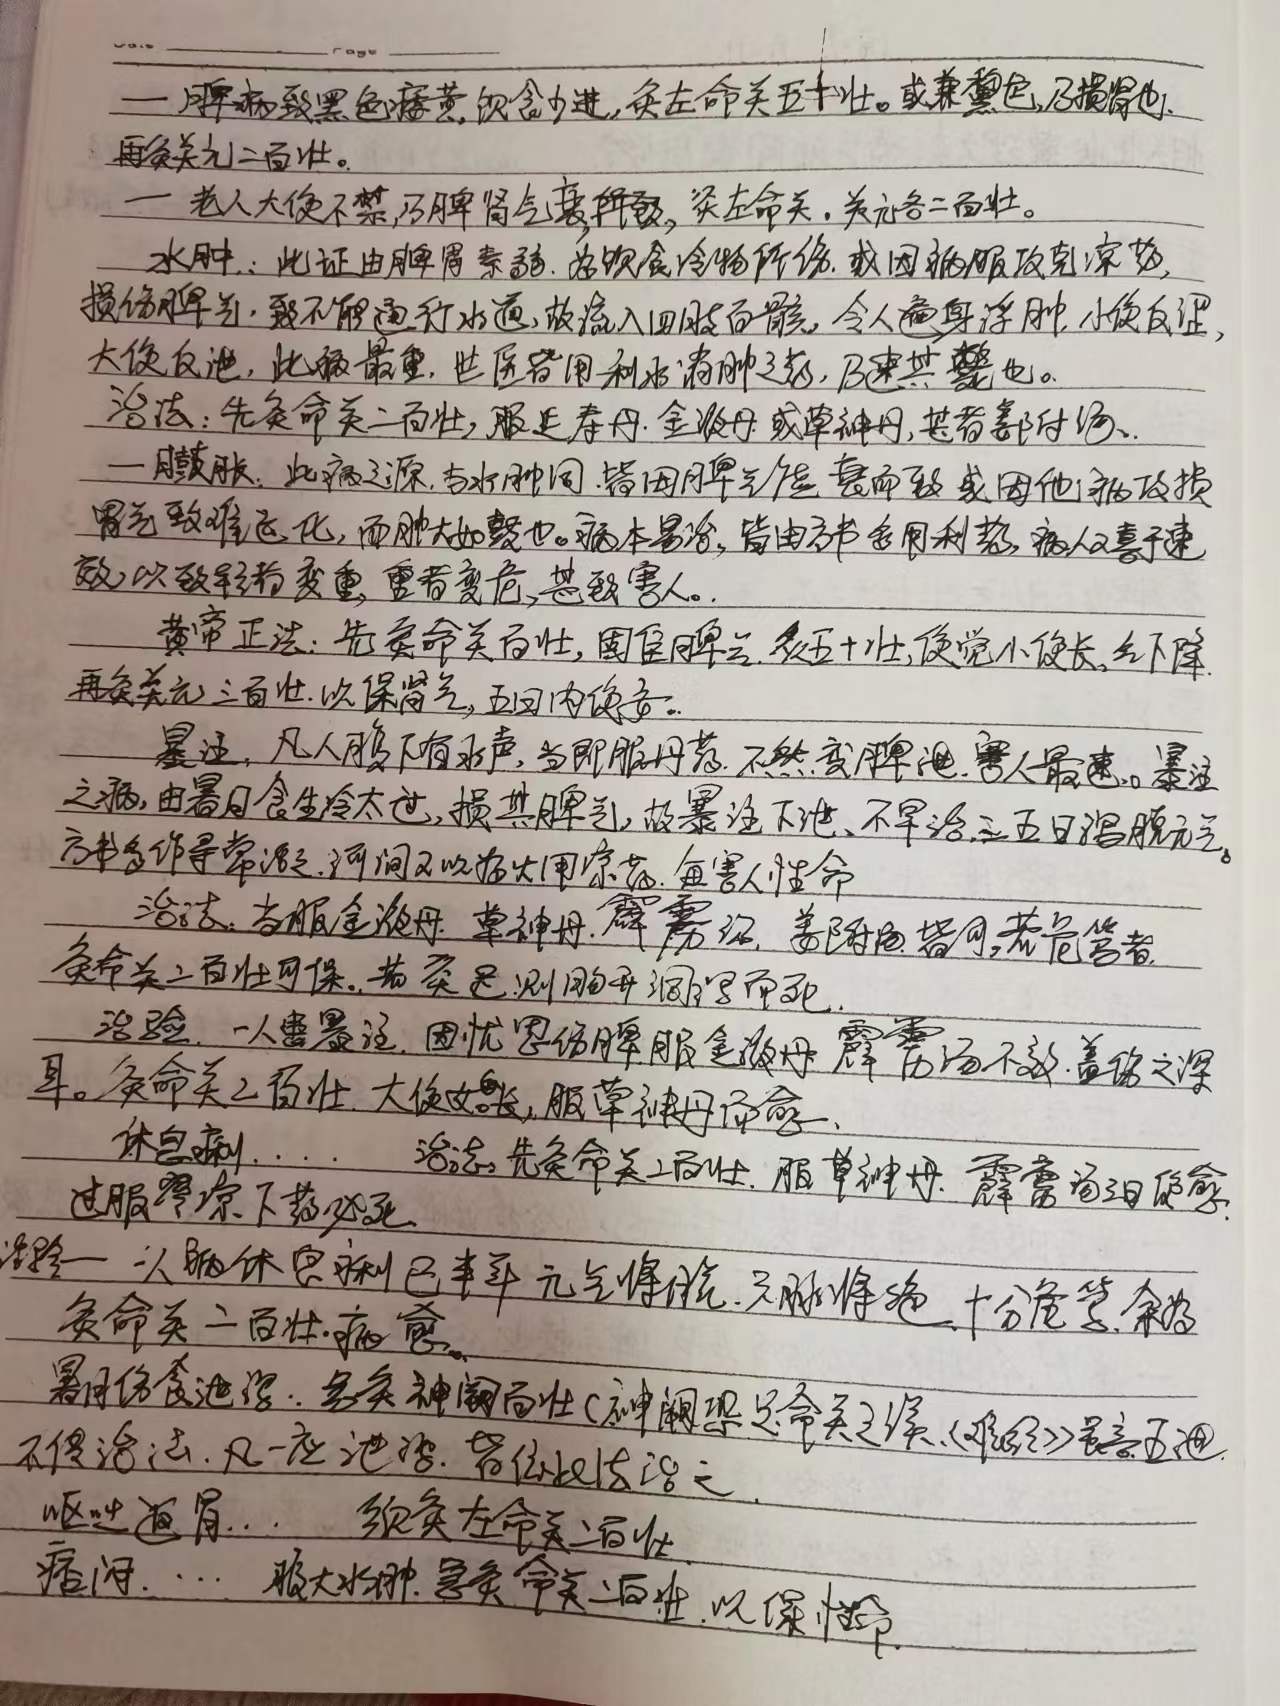 Date Page
一 脾病致黑色痿黄,饮食少进,灸左命关五十壮。或兼黧色,乃损肾也,
再灸关元二百壮。
一 老人大便不禁,乃脾肾气衰,所致,灸左命关.关元各二百壮。
水肿:此证由脾胃素弱.为饮食冷物所伤.或因病服攻克凉药,
损伤脾气.致不能通行水道,故流入四肢百骸,令人遍身浮肿,小便反涩,
大便反泄,此病最重.世医皆用利水消肿之药,乃速其毙也。
治法:先灸命关二百壮,服延寿丹.金液丹或草神丹,甚者姜附汤.
一 臌胀.此病之源.与水肿同.皆因脾气虚衰而致或因他病攻损
胃气致难运化,而肿大如鼓也。病本易治,皆由方书多用利药,病人又喜于速
效,以致轻者变重,重者变危,甚致害人。
黄帝正法:先灸命关百壮,固住脾气.灸五十壮,便觉小便长,气下降.
再灸关元三百壮.以保肾气,五日内便安。
暴注,凡人腹下有水声,当即服丹药.不然变脾泄.害人最速。暴注
之病,由暑月食生冷太过,损其脾气,故暴注下泄、不早治三五日泻脱元气。
方书多作寻常治之.河间又以为火用凉药.每害人性命
治法:当服金液丹.草神丹.霹雳汤.姜附汤皆可,若危笃者.
灸命关二百壮可保.若灸迟.则肠开洞泄而死.
治验.一人患暴注.因忧思伤脾服金液丹霹雳汤不效.盖伤之深
耳。灸命关二百壮.大便始长,服草神丹而愈.
休息痢.... 治法:先灸命关二百壮.服草神丹.霹雳汤三日便愈.
过服寒凉下药必死.
治验一 一人病休息痢已半年 元气将脱.六脉将绝.十分危笃.余为
灸命关二百壮.病愈.
暑月伤食泄泻.急灸神阙百壮(神阙恐是命关之误.《难经》虽言五泄.
不传治法.凡一应泄泻.皆依此法治之.
呕吐返胃... 须灸左命关二百壮.
痞闷.... 服大水肿.急灸命关二百壮.以保性命.